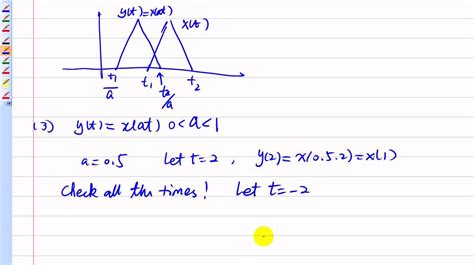 y(t)=x(at)
x(t)
t1/a t1 t2/a t2
(3) y(t)= x(at) 0<a<1
a=0.5 Let t=2, y(2)=x(0.5·2)=x(1)
Check all the times! Let t=-2